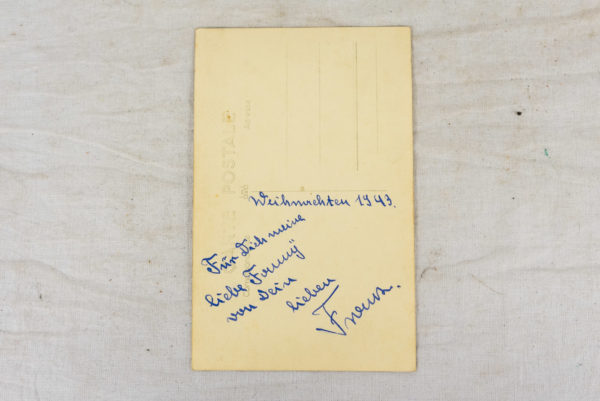 Weihnachten 1943.
Für Dich meine
liebe Fanny
von Dein
lieben
Franz.
POSTALE